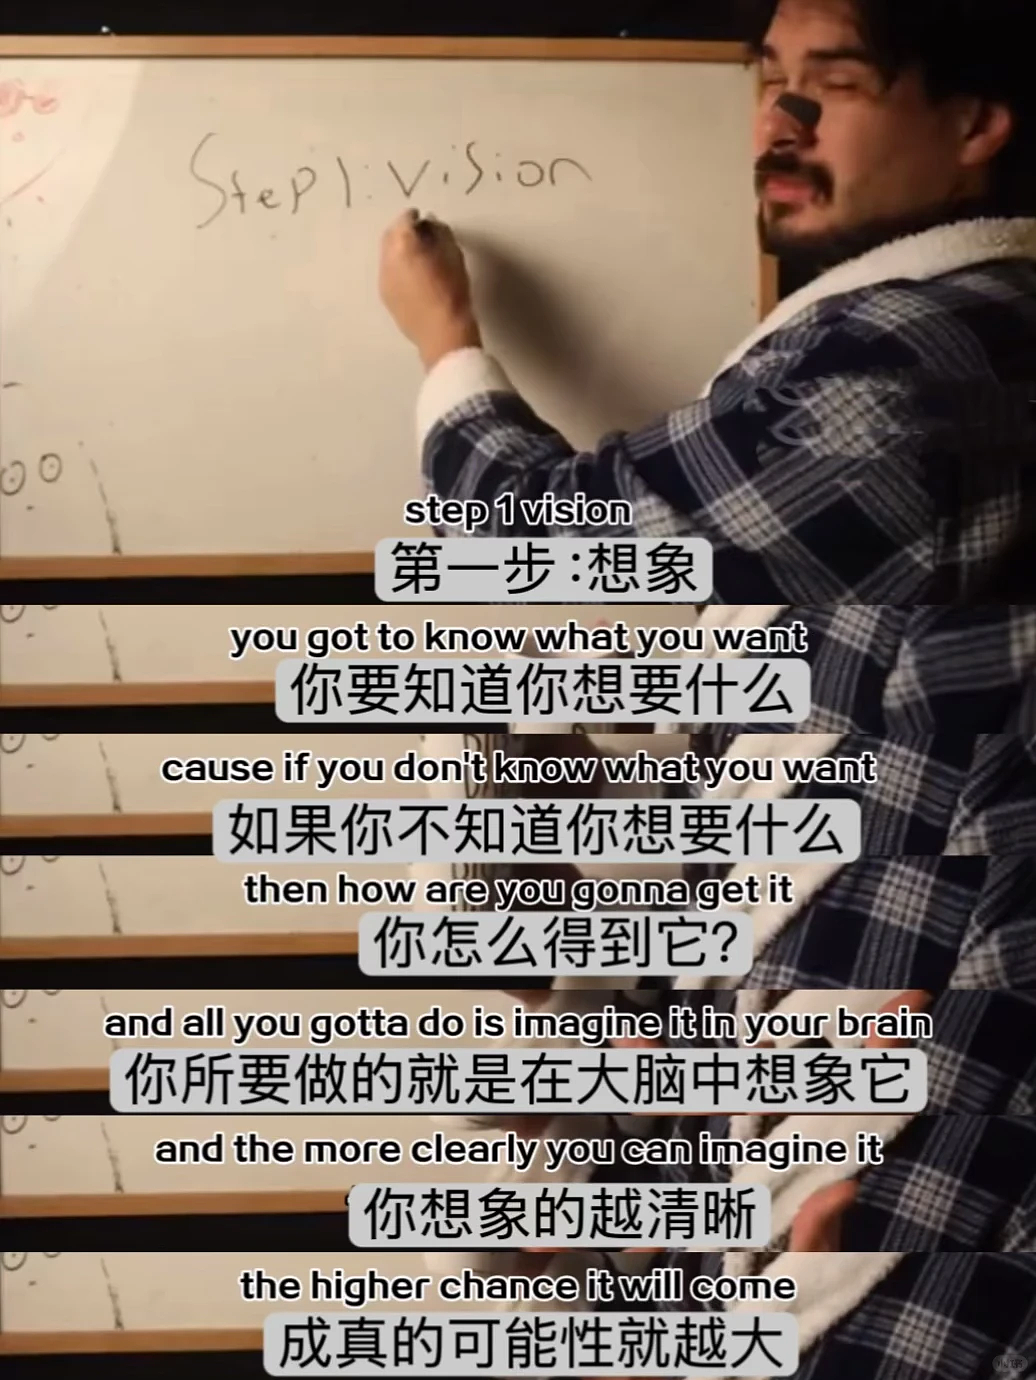 Step 1: Vision
step 1 vision
第一步:想象
you got to know what you want
你要知道你想要什么
cause if you don't know what you want
如果你不知道你想要什么
then how are you gonna get it
你怎么得到它?
and all you gotta do is imagine it in your brain
你所要做的就是在大脑中想象它
and the more clearly you can imagine it
你想象的越清晰
the higher chance it will come
成真的可能性就越大